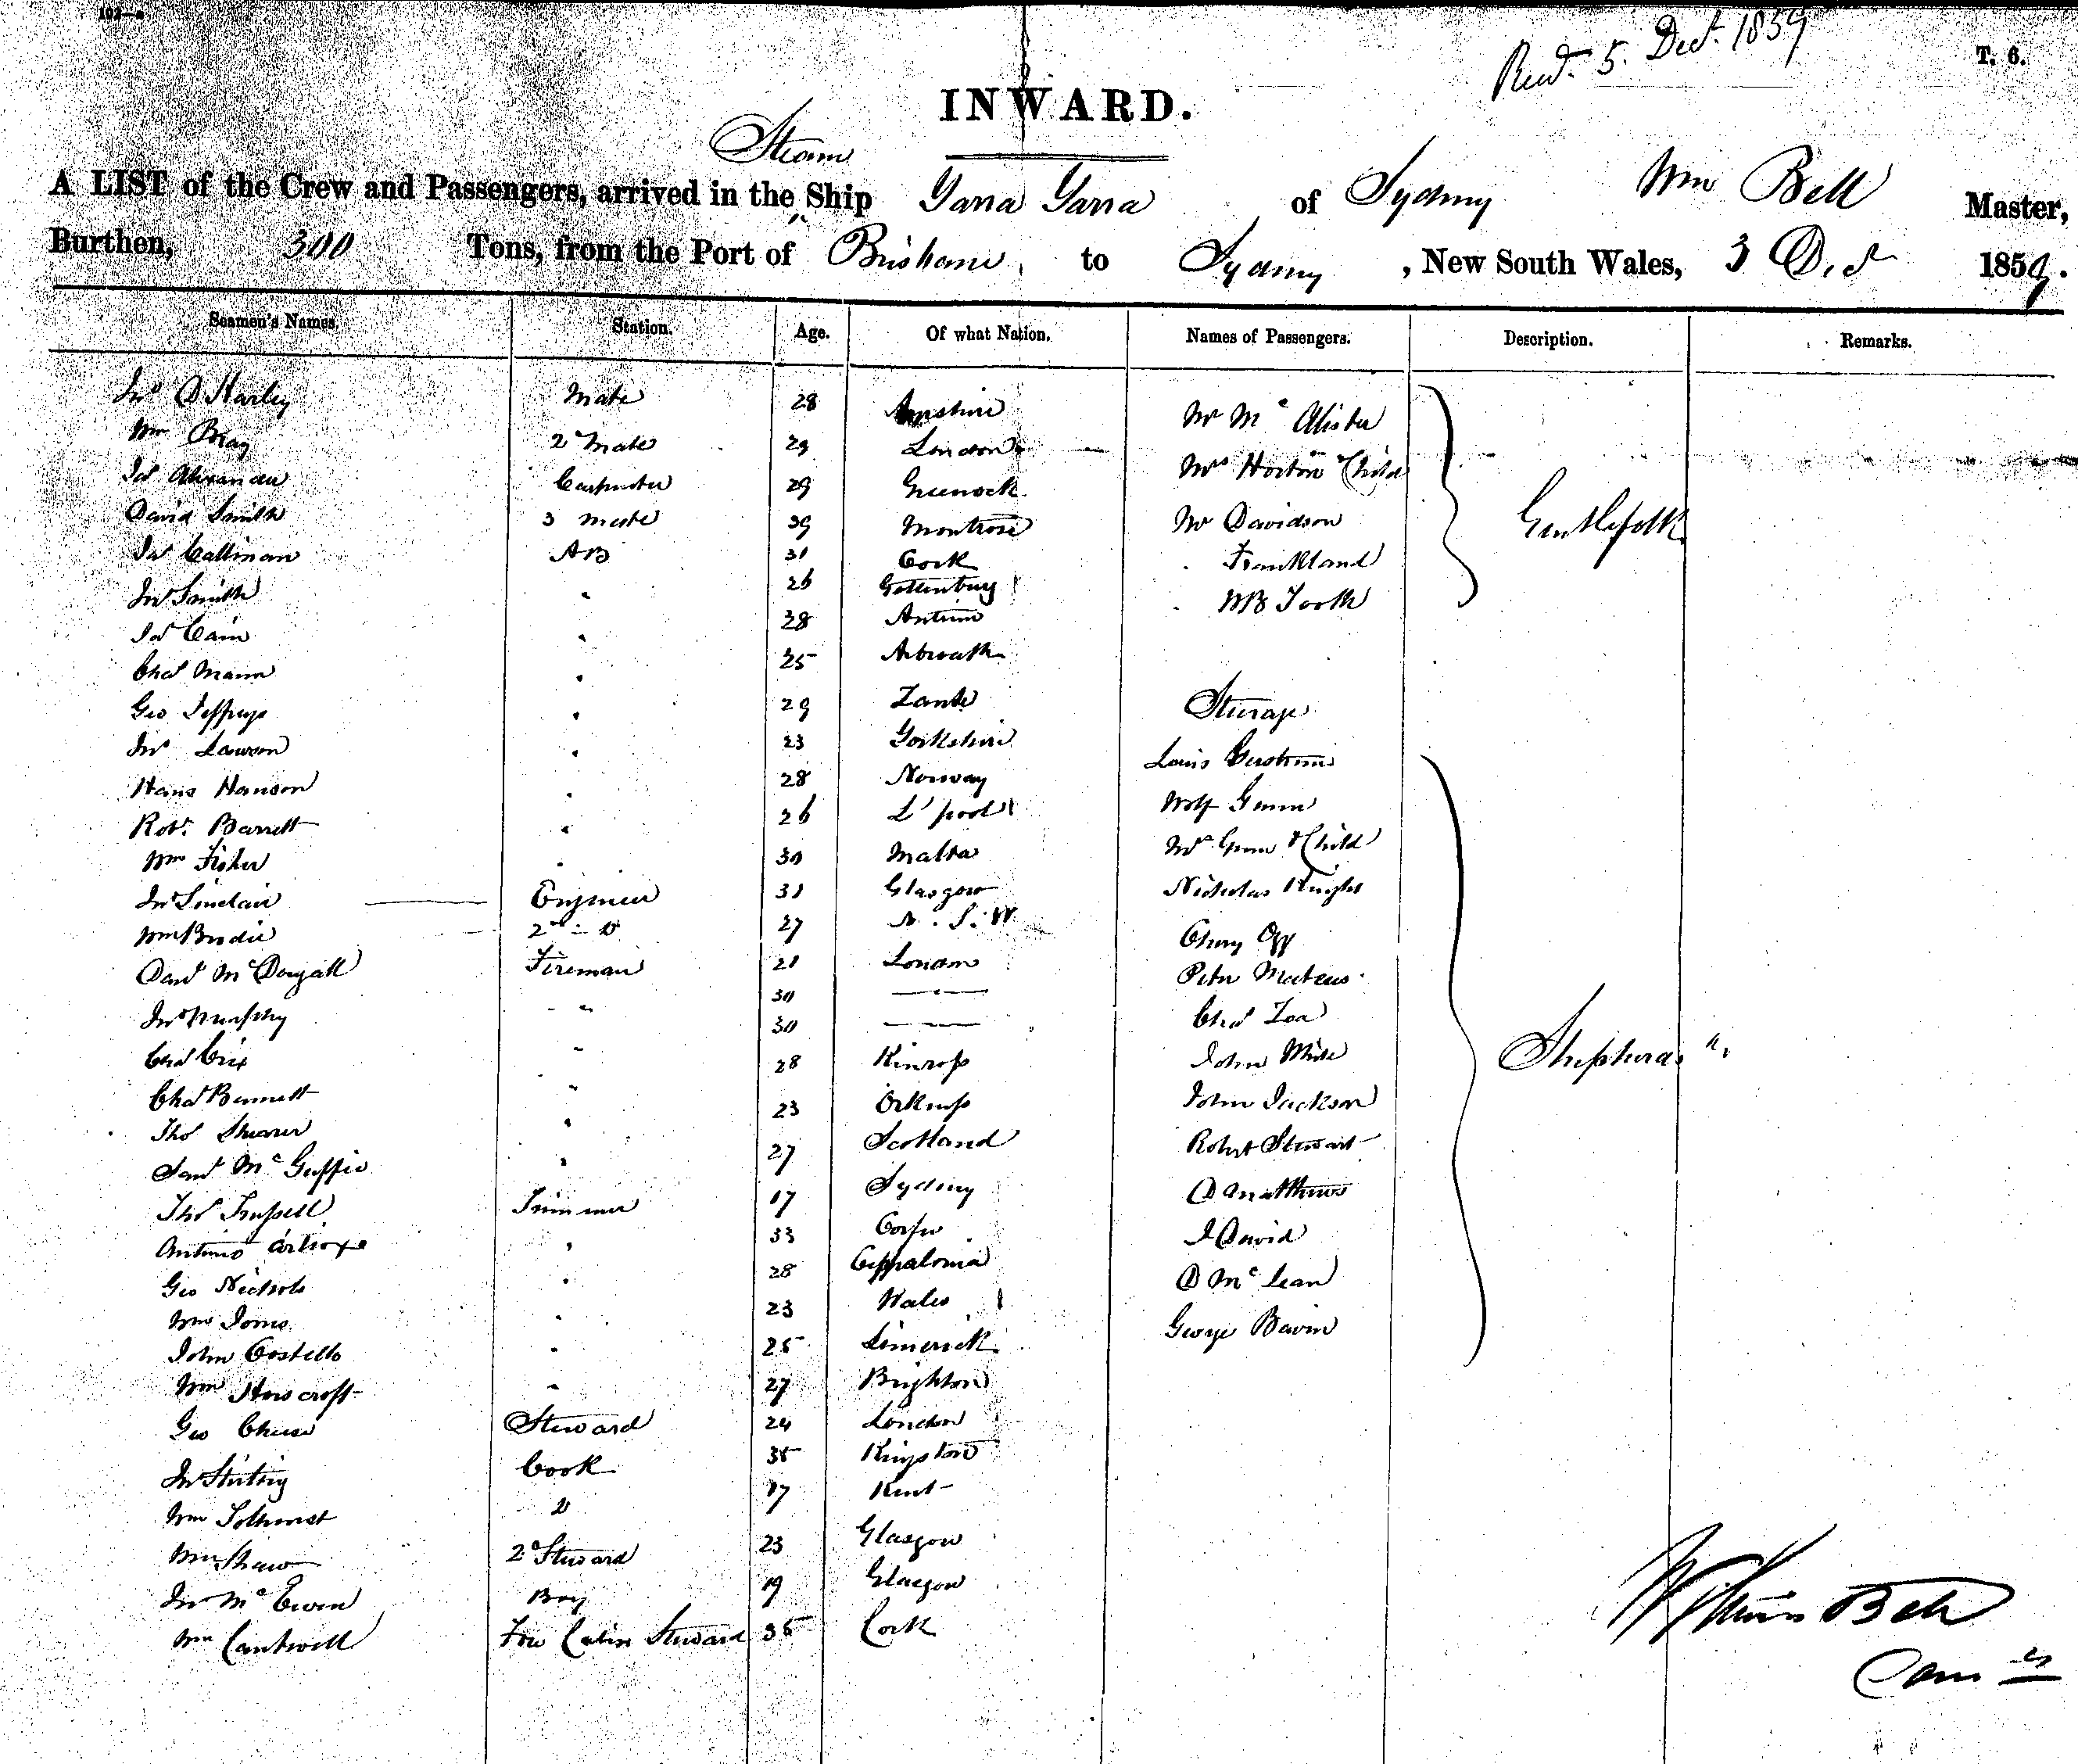 102—a
Recd. 5. Dect. 1859
T. 6.
INWARD.
Steam
A LIST of the Crew and Passengers, arrived in the Ship Yarra Yarra of Sydney Wm Bell Master,
Burthen, 300 Tons, from the Port of Brisbane, to Sydney, New South Wales, 3 Dec 1859.
Seamen's Names. Station. Age. Of what Nation. Names of Passengers. Description. Remarks.
Jno D Harley Mate 28 Mr Mc Alister
Wm Bray 2d Mate 29 London Mrs Horton & Child
Jas Alexander Carpenter 29 Greenock Mr Davidson Gentlefolk
David Smith 3 mate 39 Montrose " Frankland
Jas Callinan AB 31 Cork " WB Tooth
Jno Smith " 26 Gottenburg
Jas Cain " 28 Antrim
Chas Mann " 25 Arbroath
Geo Jeffreys " 29 Zante Steerage
Jno Lawson " 23 Yorkshire Louis
Hans Hanson " 28 Norway Wolf
Robt. Barrett " 26 L'pool & Child
Wm Fisher " 30 Malta Nicholas Knight
Jno Sinclair Engineer 31 Glasgow
Wm Brodie 2nd Do 27 N. S. W. Peter
Dand McDougall Fireman 21 London Chas
Jno Murphy " 30 — " — John White
Chas Crix " 30 — " — John Jackson Shepherds &c.
Chas Bennett " 28 Kinross Robert Stewart
Thos Shearer " 23 Orkneys D Matthews
Saml McGuffie " 27 Scotland J David
Thos Trussell Trimmer 17 Sydney D McLean
Antonio " 33 Corfu George Bavin
Geo Nichols " 28 Cephalonia
Wm Jones " 23 Wales
John Costello " 25 Limerick
Wm Howcroft " 27 Brighton
Geo Cheese Steward 24 London
Jno Stirling Cook 35 Kingston
Wm Tolhurst Do 17 Kent
Wm Shaw 2d Steward 23 Glasgow
Jno McEwen Boy 19 Glasgow
Wm Cantwell Fore Cabin Steward 35 Cork
William Bell
Comr